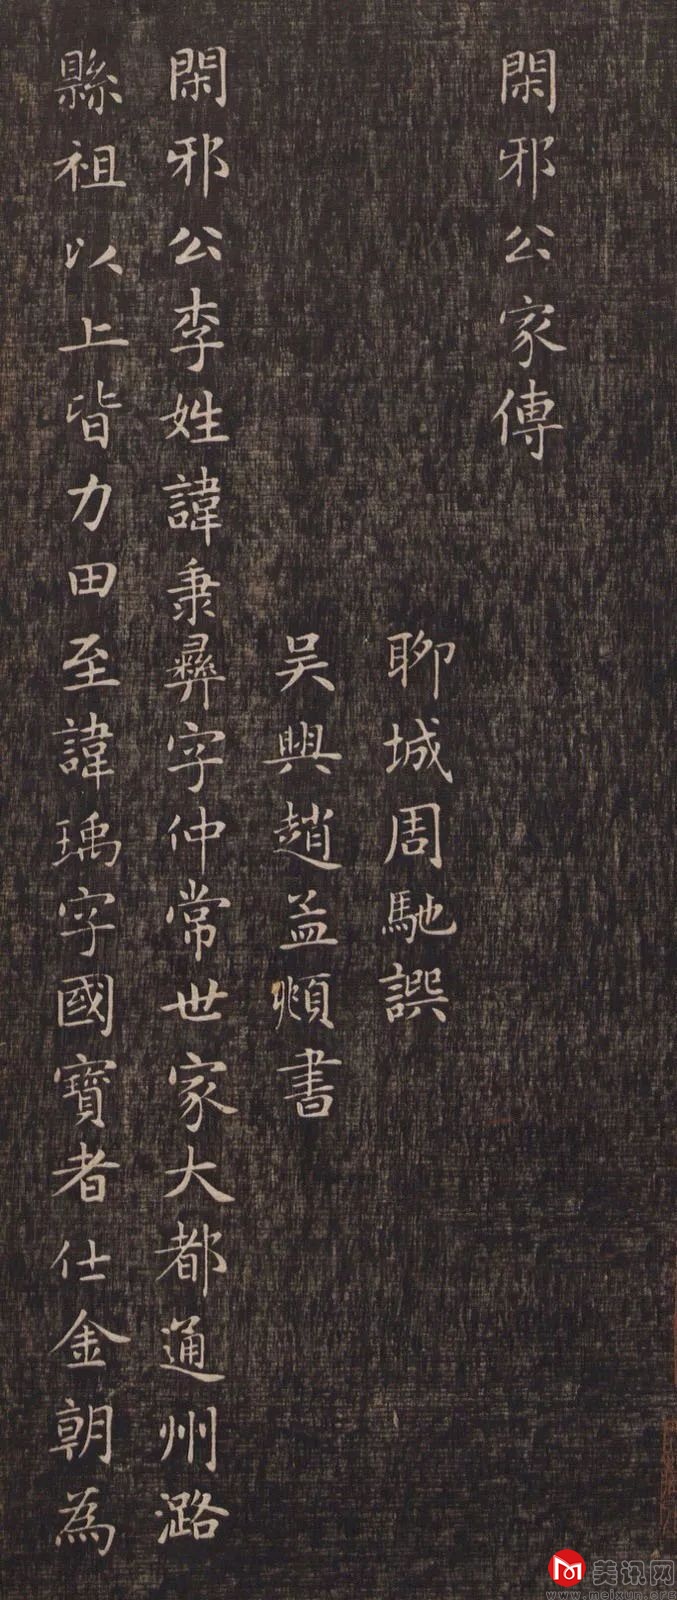 閑邪公家傳
聊城周馳譔
吴興趙孟頫書
閑邪公李姓諱秉彝字仲常世家大都通州潞
縣祖以上皆力田至諱瑀字國寳者仕金朝為
美讯网
www.meixun.org